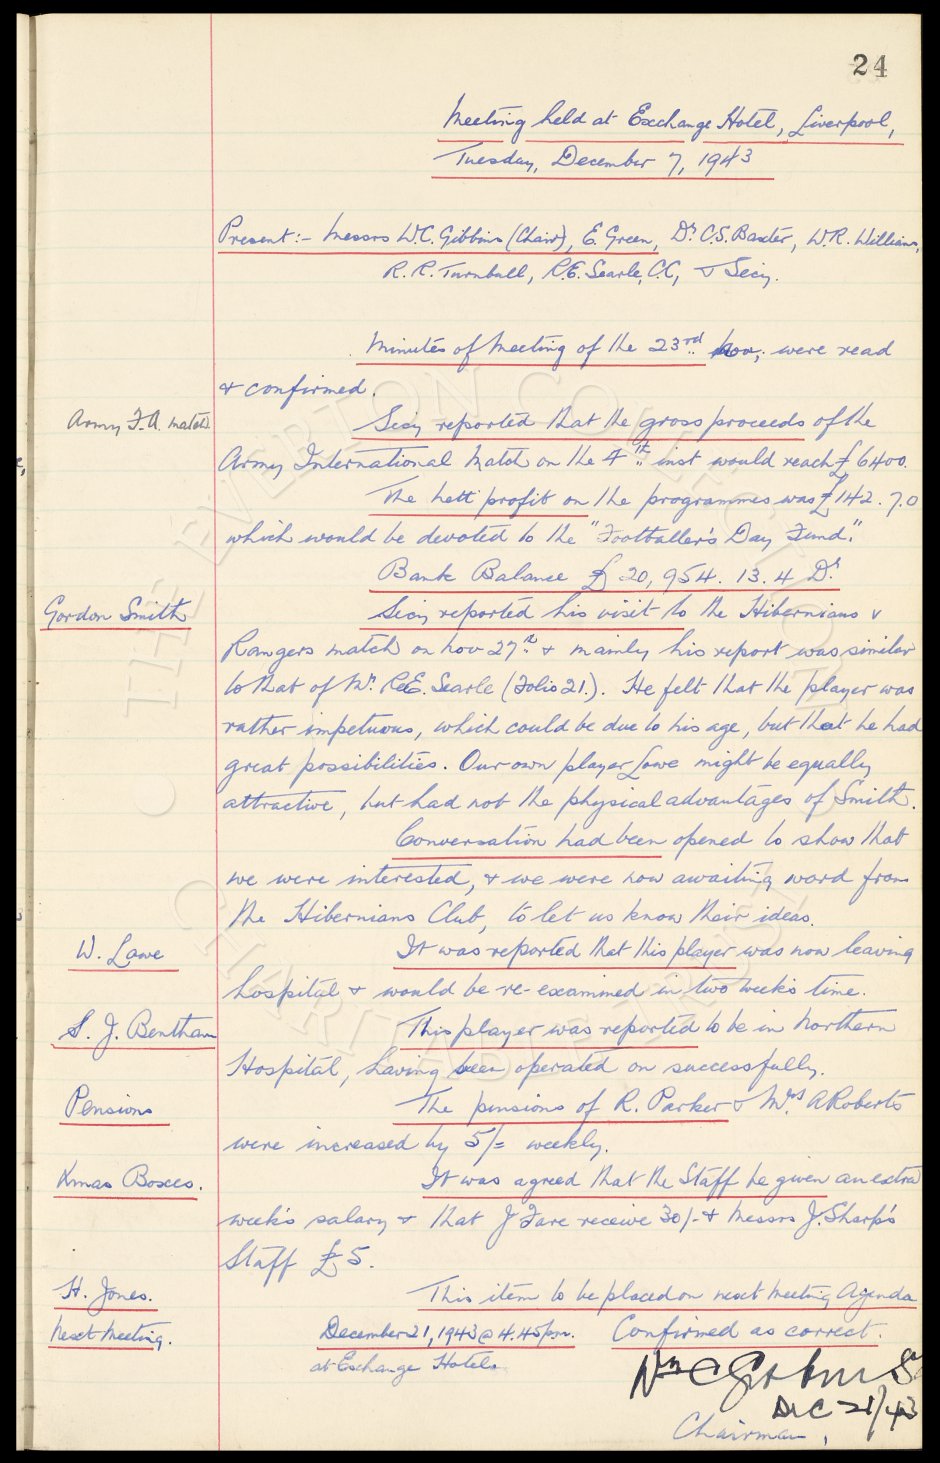 24
Meeting held at Exchange Hotel, Liverpool,
Tuesday, December 7, 1943
Present:- Messrs W.C. Gibbins (Chair), E. Green, Dr C.S. Baxter, W.R. Williams,
R.R. Turnbull, R.E. Searle, C.C, & Secy.
Minutes of Meeting of the 23rd Nov, were read
& confirmed.
Army F.A. match
Secy reported that the gross proceeds of the
Army International Match on the 4th inst would reach £6400.
The nett profit on the programmes was £142.7.0
which would be devoted to the "Footballer's Day Fund."
Bank Balance £20,954.13.4 Dr
Gordon Smith
Secy reported his visit to the Hibernians &
Rangers match on Nov 27th & mainly his report was similar
to that of Mr R.E. Searle (Folio 21.). He felt that the player was
rather impetuous, which could be due to his age, but that he had
great possibilities. Our own player Lowe might be equally
attractive, but had not the physical advantages of Smith.
Conversation had been opened to show that
we were interested, & we were now awaiting word from
the Hibernians Club, to let us know their ideas.
W. Lowe
It was reported that this player was now leaving
hospital & would be re-examined in two weeks time.
S. J. Bentham
This player was reported to be in Northern
Hospital, having been operated on successfully.
Pensions
The pensions of R. Parker & Mrs A Roberts
were increased by 5/= weekly.
Xmas Boxes.
It was agreed that the Staff be given an extra
week's salary & that J Fare receive 30/- & Messrs J. Sharp's
Staff £5.
H. Jones.
This item to be placed on next Meeting Agenda
Next Meeting.
December 21, 1943 @ 4.45pm. Confirmed as correct.
at Exchange Hotel.
Wm C Gibbins
Dec 21/43
Chairman,
THE EVERTON COLLECTION
CHARITABLE TRUST